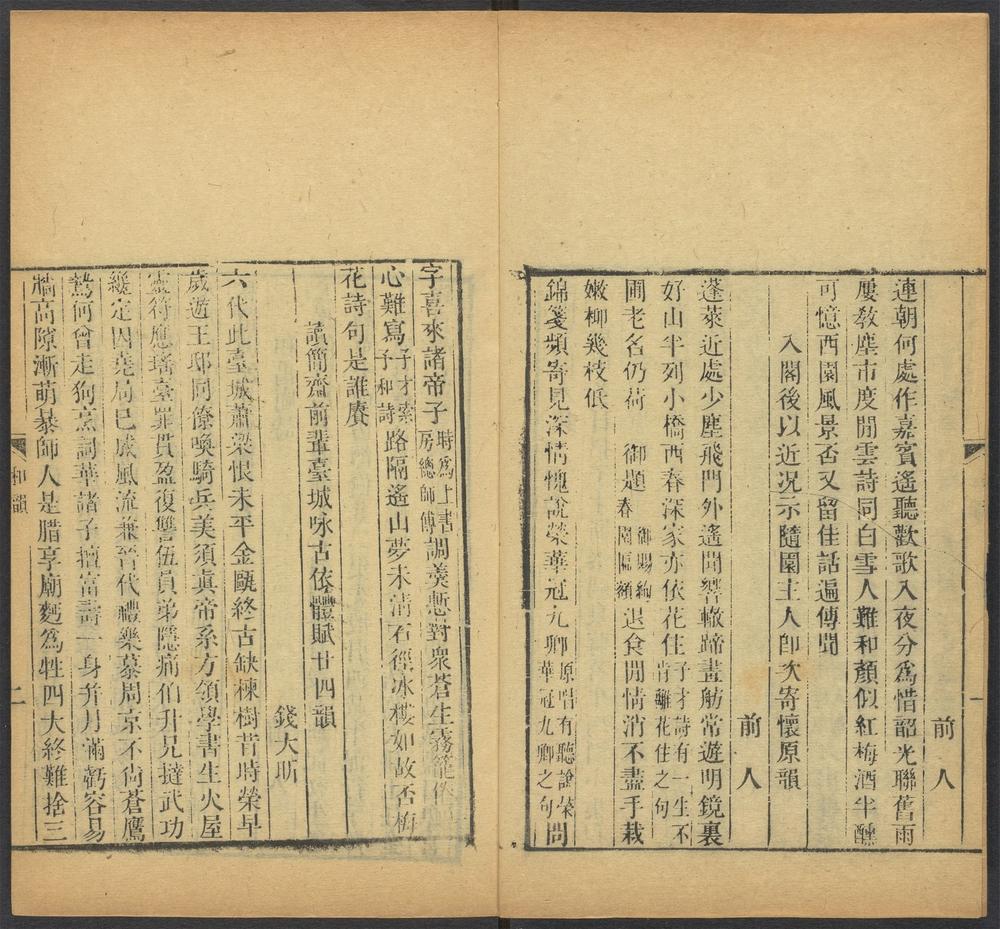 前人
連朝何處作嘉賓遙聽歡歌入夜分爲惜韶光聯舊雨
屢敎塵市度閒雲詩同白雪人難和顏似紅梅酒半醺
可憶西園風景否又留佳話遍傳聞
入閣後以近况示隨園主人卽次寄懷原韻
前人
蓬萊近處少塵飛門外遙聞響轍蹄畫舫常遊明鏡裏
好山半列小橋西春深家亦依花住子才詩有一生不肯離花住之句
圃老名仍荷 御題御賜絢春園匾額退食閒情消不盡手栽
嫩柳幾枝低
錦箋頻寄見深情愧說榮華冠九卿原唱有聽說榮華冠九卿之句問
字喜來諸帝子時爲上書房總師傅調羹慙對衆蒼生霧籠
心難寫子才索予和詩路隔遙山夢未淸石徑冰樓如故否梅
花詩句是誰賡
讀簡齋前輩臺城咏古依體賦廿四韻
錢大昕
六代此臺城蕭梁恨未平金甌終古缺棟樹昔時榮早
歲遊王邸同僚喚騎兵美須眞帝系方領學書生火屋
靈符應瑤臺罪貫盈復讐伍員弟隱痛伯升兄撻武功
纔定因堯局已成風流兼晉代禮樂慕周京不倘蒼鷹
鷙何曾走狗烹詞華諸子擅富壽一身幷月滿虧容易
牆高隙漸萌暴師人是腊享廟麪爲牲四大終難捨三
和韻
一
二